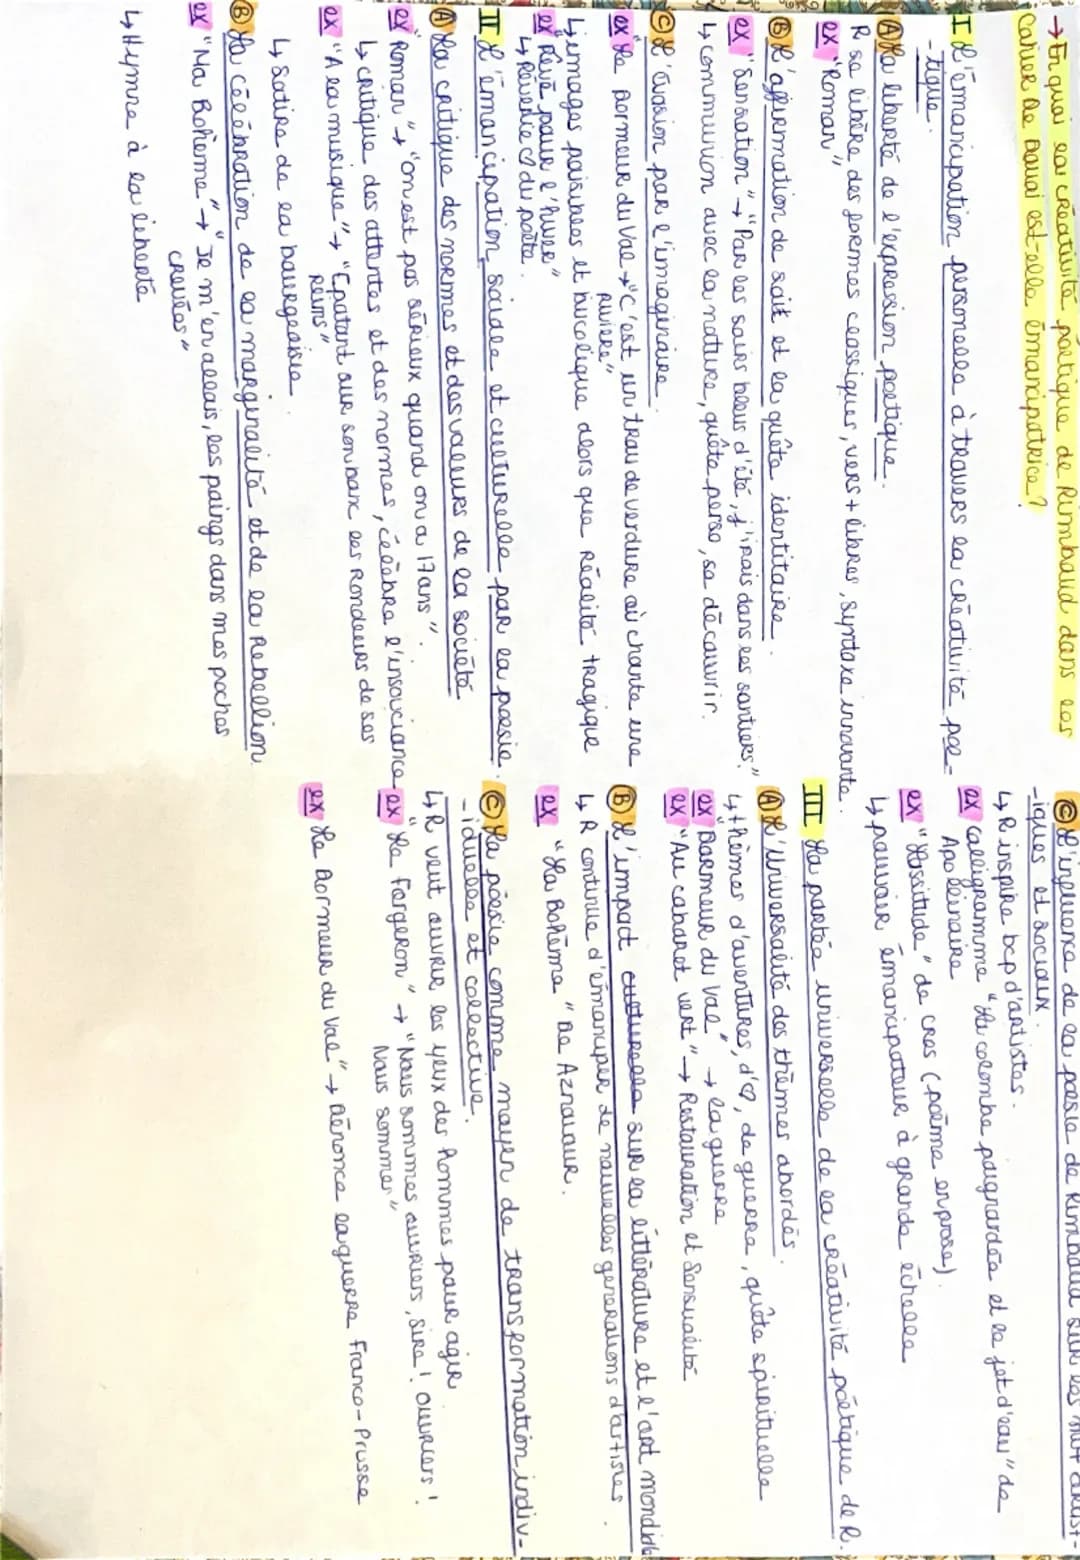 → En quoi la créativité poétique de Rimbaud dans les
Cahier de Douai est-elle émancipatrice ?
I L'émancipation personnelle à travers la créativité poé-
-tique.
A La liberté de l'expression poétique.
R se libère des formes classiques, vers + libres, syntaxe innovante.
ex "Roman"
B L'affirmation de soit et la quête identitaire.
ex "Sensation" → "Par les soirs bleus d'été, j'irais dans les sentiers."
↳ communion avec la nature, quête perso, se découvrir.
C L'évasion par l'imaginaire.
ex "Le Dormeur du Val → "C'est un trou de verdure où chante une
rivière"
↳ images paisibles et bucolique alors que réalité tragique
ex "Rêvé pour l'hiver"
↳ Rêverie ♡ du poète.
II L'émancipation sociale et culturelle par la poésie.
A La critique des normes et des valeurs de la société
ex "Roman" → "On est pas sérieux quand on a 17 ans".
↳ critique des attentes et des normes, célèbre l'insouciance
ex "A la musique" → "Epatant sur son banc les rondeurs de ses
reins"
↳ satire de la bourgeoisie.
B La célébration de la marginalité et de la Rebellion
ex "Ma Bohème" → "Je m'en allais, les poings dans mes poches
crevées"
↳ Hymne à la liberté
C L'influence de la poésie de Rimbaud sur les mvt artist-
-iques et sociaux.
↳ R inspire bcp d'artistes.
ex calligramme "La colombe poignardée et le jet d'eau" de
Apollinaire
ex "Lassitude" de Cros (poème en prose).
↳ pouvoir émancipateur à grande échelle
III La portée universelle de la créativité poétique de R.
A L'universalité des thèmes abordés.
↳ thèmes d'aventures, d'♡, de guerre, quête spirituelle
ex "Dormeur du Val" → la guerre
ex "Au cabaret vert" → Restauration et Sensualité
B L'impact culturelle sur la littérature et l'art mondiale
↳ R continue d'émanciper de nouvelles generations d'artistes.
ex "La Bohème" De Aznavour.
C La poésie comme moyen de transformation indiv-
-iduelle et collective.
↳ R veut ouvrir les yeux des Hommes pour agir
ex "Le Forgeron" → "Nous sommes ouvriers, Sire ! ouvriers !
Nous sommes"
ex Le Dormeur du Val" → Dénonce la guerre Franco-Prusse